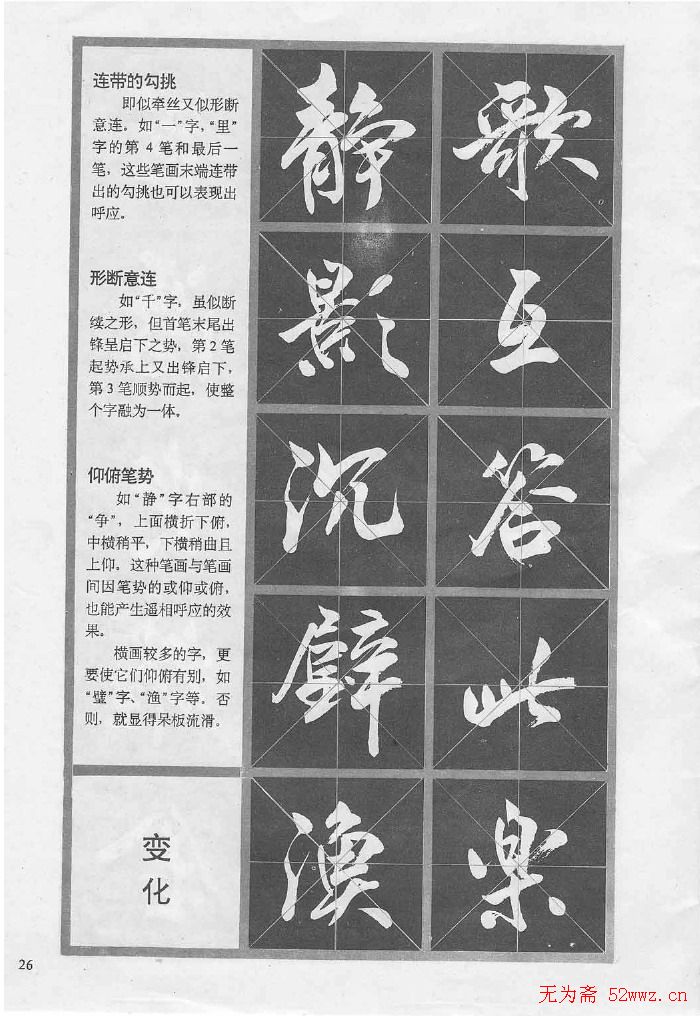 连带的勾挑
即似牵丝又似形断
意连。如“一”字，“里”
字的第4笔和最后一
笔，这些笔画末端连带
出的勾挑也可以表现出
呼应。
形断意连
如“千”字，虽似断
续之形，但首笔末尾出
锋呈启下之势，第2笔
起势承上又出锋启下，
第3笔顺势而起，使整
个字融为一体。
仰俯笔势
如“静”字右部的
“争”，上面横折下俯，
中横稍平，下横稍曲且
上仰。这种笔画与笔画
间因笔势的或仰或俯，
也能产生遥相呼应的效
果。
横画较多的字，更
要使它们仰俯有别，如
“璧”字、“渔”字等。否
则，就显得呆板流滑。
变
化
静
影
沉
璧
漁
歌
互
答
此
楽
26
无为斋 52wwz.cn